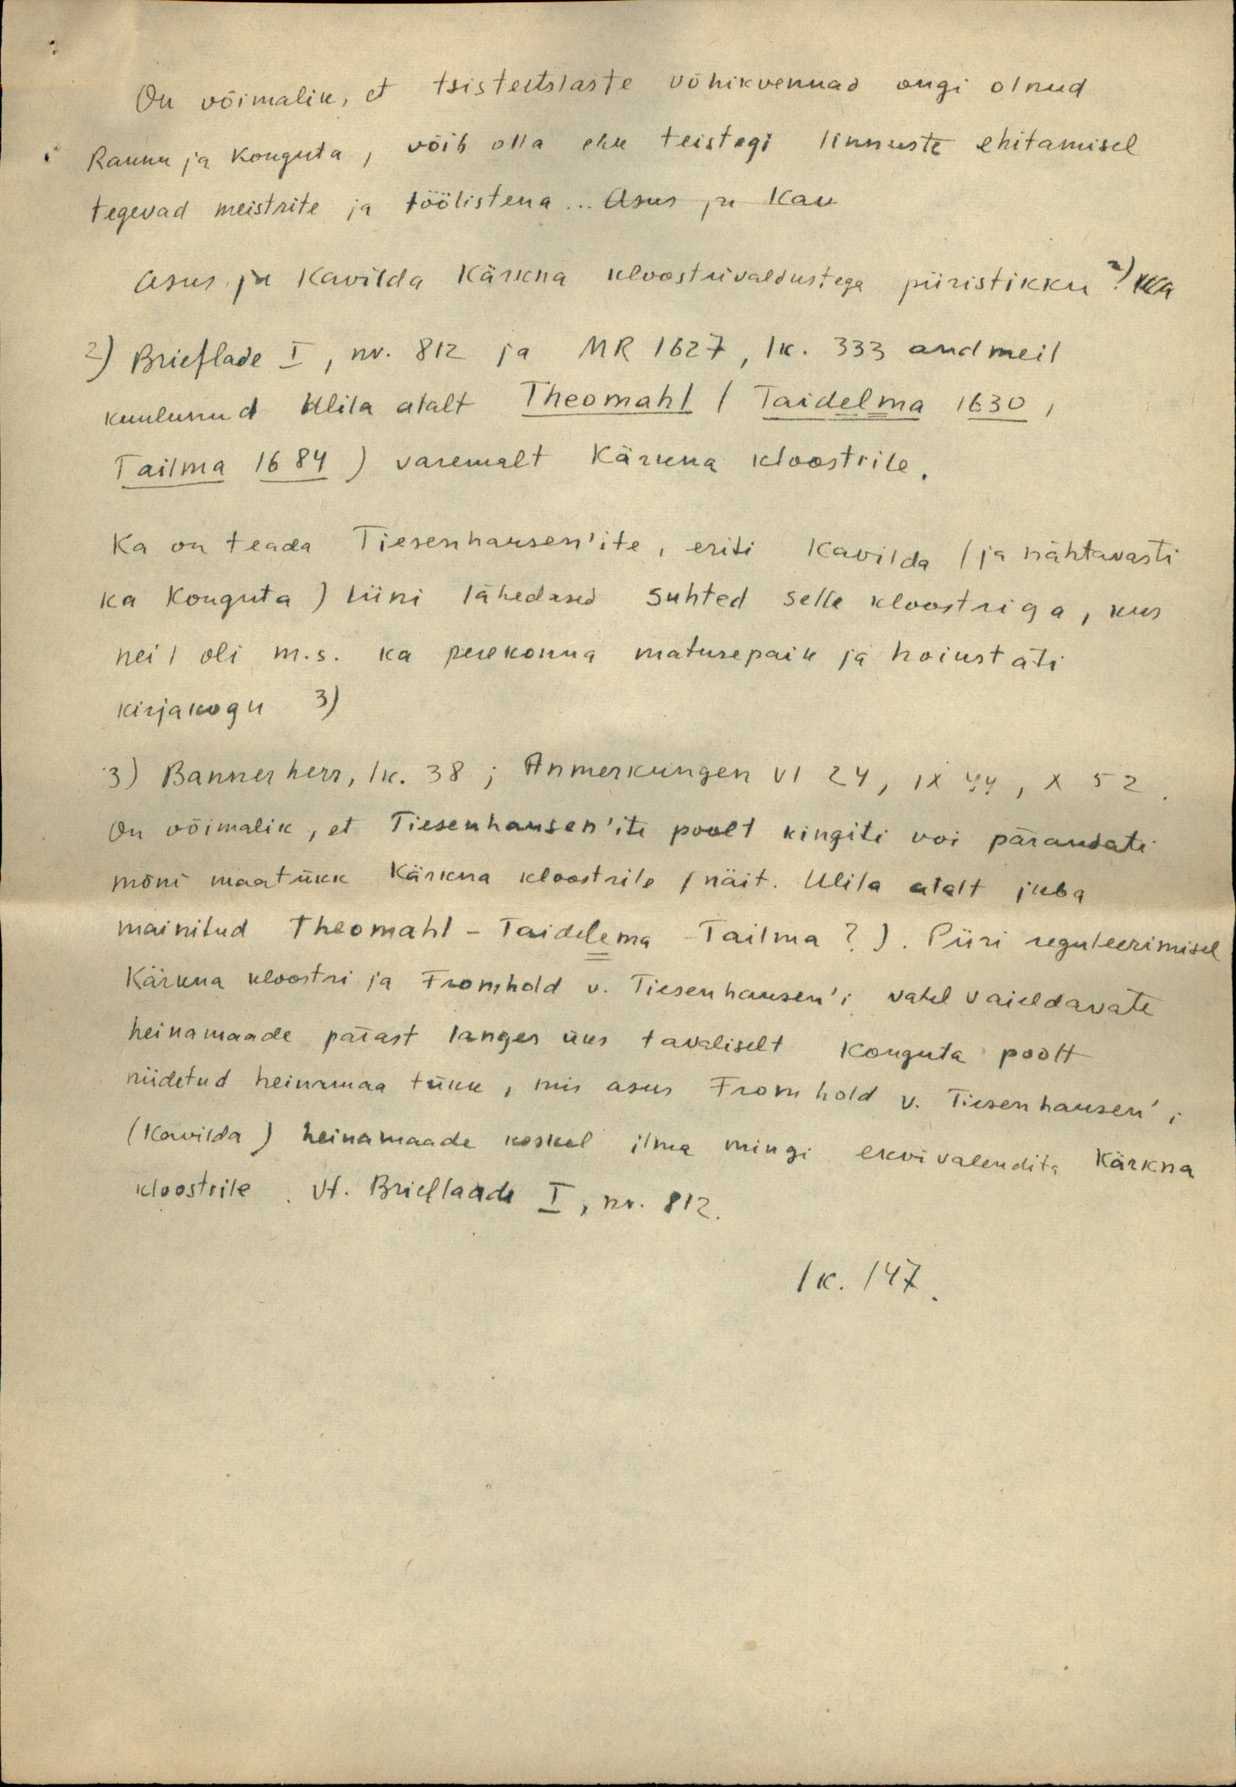 On võimalik, et tsistertslaste võhikvennad ongi olnud
Rannu ja Konguta, võib olla ehk teistegi linnuste ehitamisel
tegevad meistrite ja töölistena... Asus ju Kav
Asus ju Kavilda Kärkna kloostrivaldustega piiristikku 2)
2) Brieflade I, nr. 812 ja MR 1627, lk. 333 andmeil
kuulunud Ulila alalt Theomahl (Taidelma 1630,
Tailma 1684) varemalt Kärkna kloostrile.
Ka on teada Tiesenhausen'ite, eriti Kavilda (ja nähtavasti
ka Konguta) liini lähedased suhted selle kloostriga, kus
neil oli m.s. ka perekonna matusepaik ja hoiustati
kirjakogu 3)
3) Bannerherr, lk. 38; Anmerkungen VI 24, IX 44, X 52.
On võimalik, et Tiesenhausen'ite poolt kingiti või pärandati
mõni maatükk Kärkna kloostrile (näit. Ulila alalt juba
mainitud Theomahl - Taidelema - Tailma?). Piiri reguleerimisel
Kärkna kloostri ja Fromhold v. Tiesenhausen'i vahel vaieldavate
heinamaade pärast langes üks tavaliselt Konguta poolt
niidetud heinamaa tükk, mis asus Fromhold v. Tiesenhausen'i
(Kavilda) heinamaade keskel ilma mingi ekvivalendita Kärkna
kloostrile. Vt. Brieflaade I, nr. 812.
lk. 147.